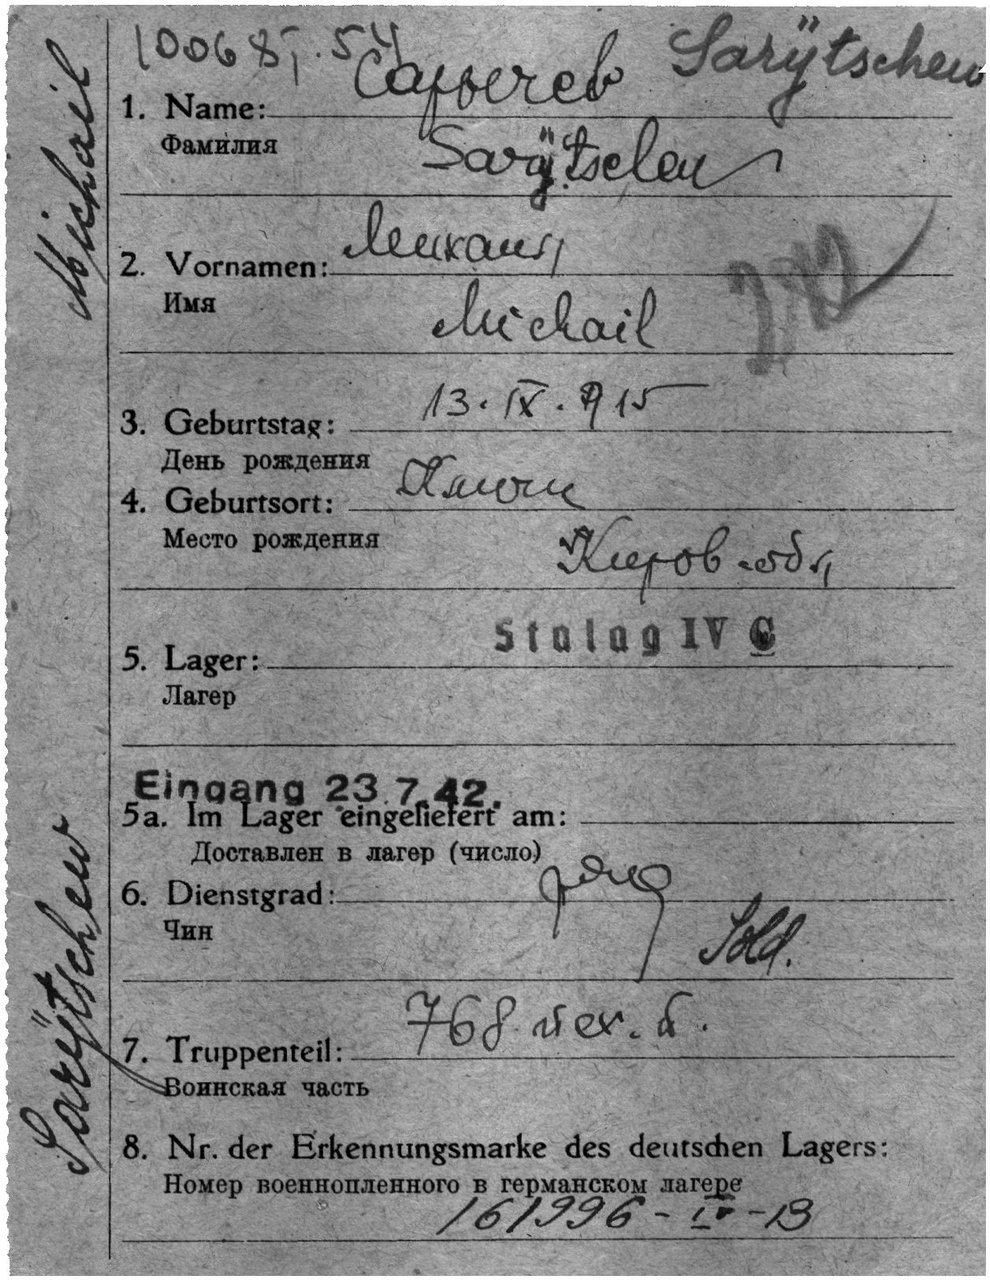 Sarÿtschew
1. Name: Сарычев
Фамилия
Sarÿtschew
2. Vornamen: Михаил
Имя
Michail
3. Geburtstag: 13. IX. 915
День рождения
4. Geburtsort: Ключи
Место рождения
Киров. обл
Stalag IV C
5. Lager:
Лагер
Eingang 23.7.42.
5a. Im Lager eingeliefert am:
Доставлен в лагер (число)
6. Dienstgrad: ряд
Чин
Sold.
7. Truppenteil: 768
Воинская часть
8. Nr. der Erkennungsmarke des deutschen Lagers:
Номер военнопленного в германском лагере
161996 - IV - B
Sarÿtschew Michail